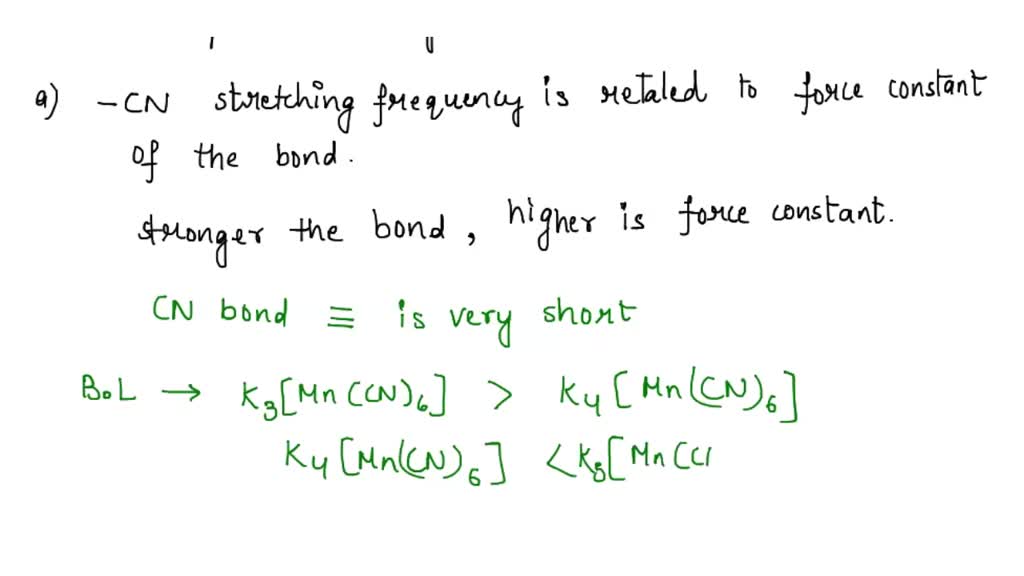 a) -CN stretching frequency is retaled to force constant
of the bond.
stronger the bond, higher is force constant.
CN bond ≡ is very short
BoL → K3[Mn(CN)6] > K4[Mn(CN)6]
K4[Mn(CN)6] <K3[Mn(C